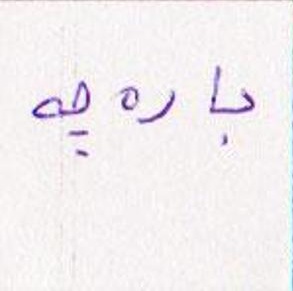 باره چه